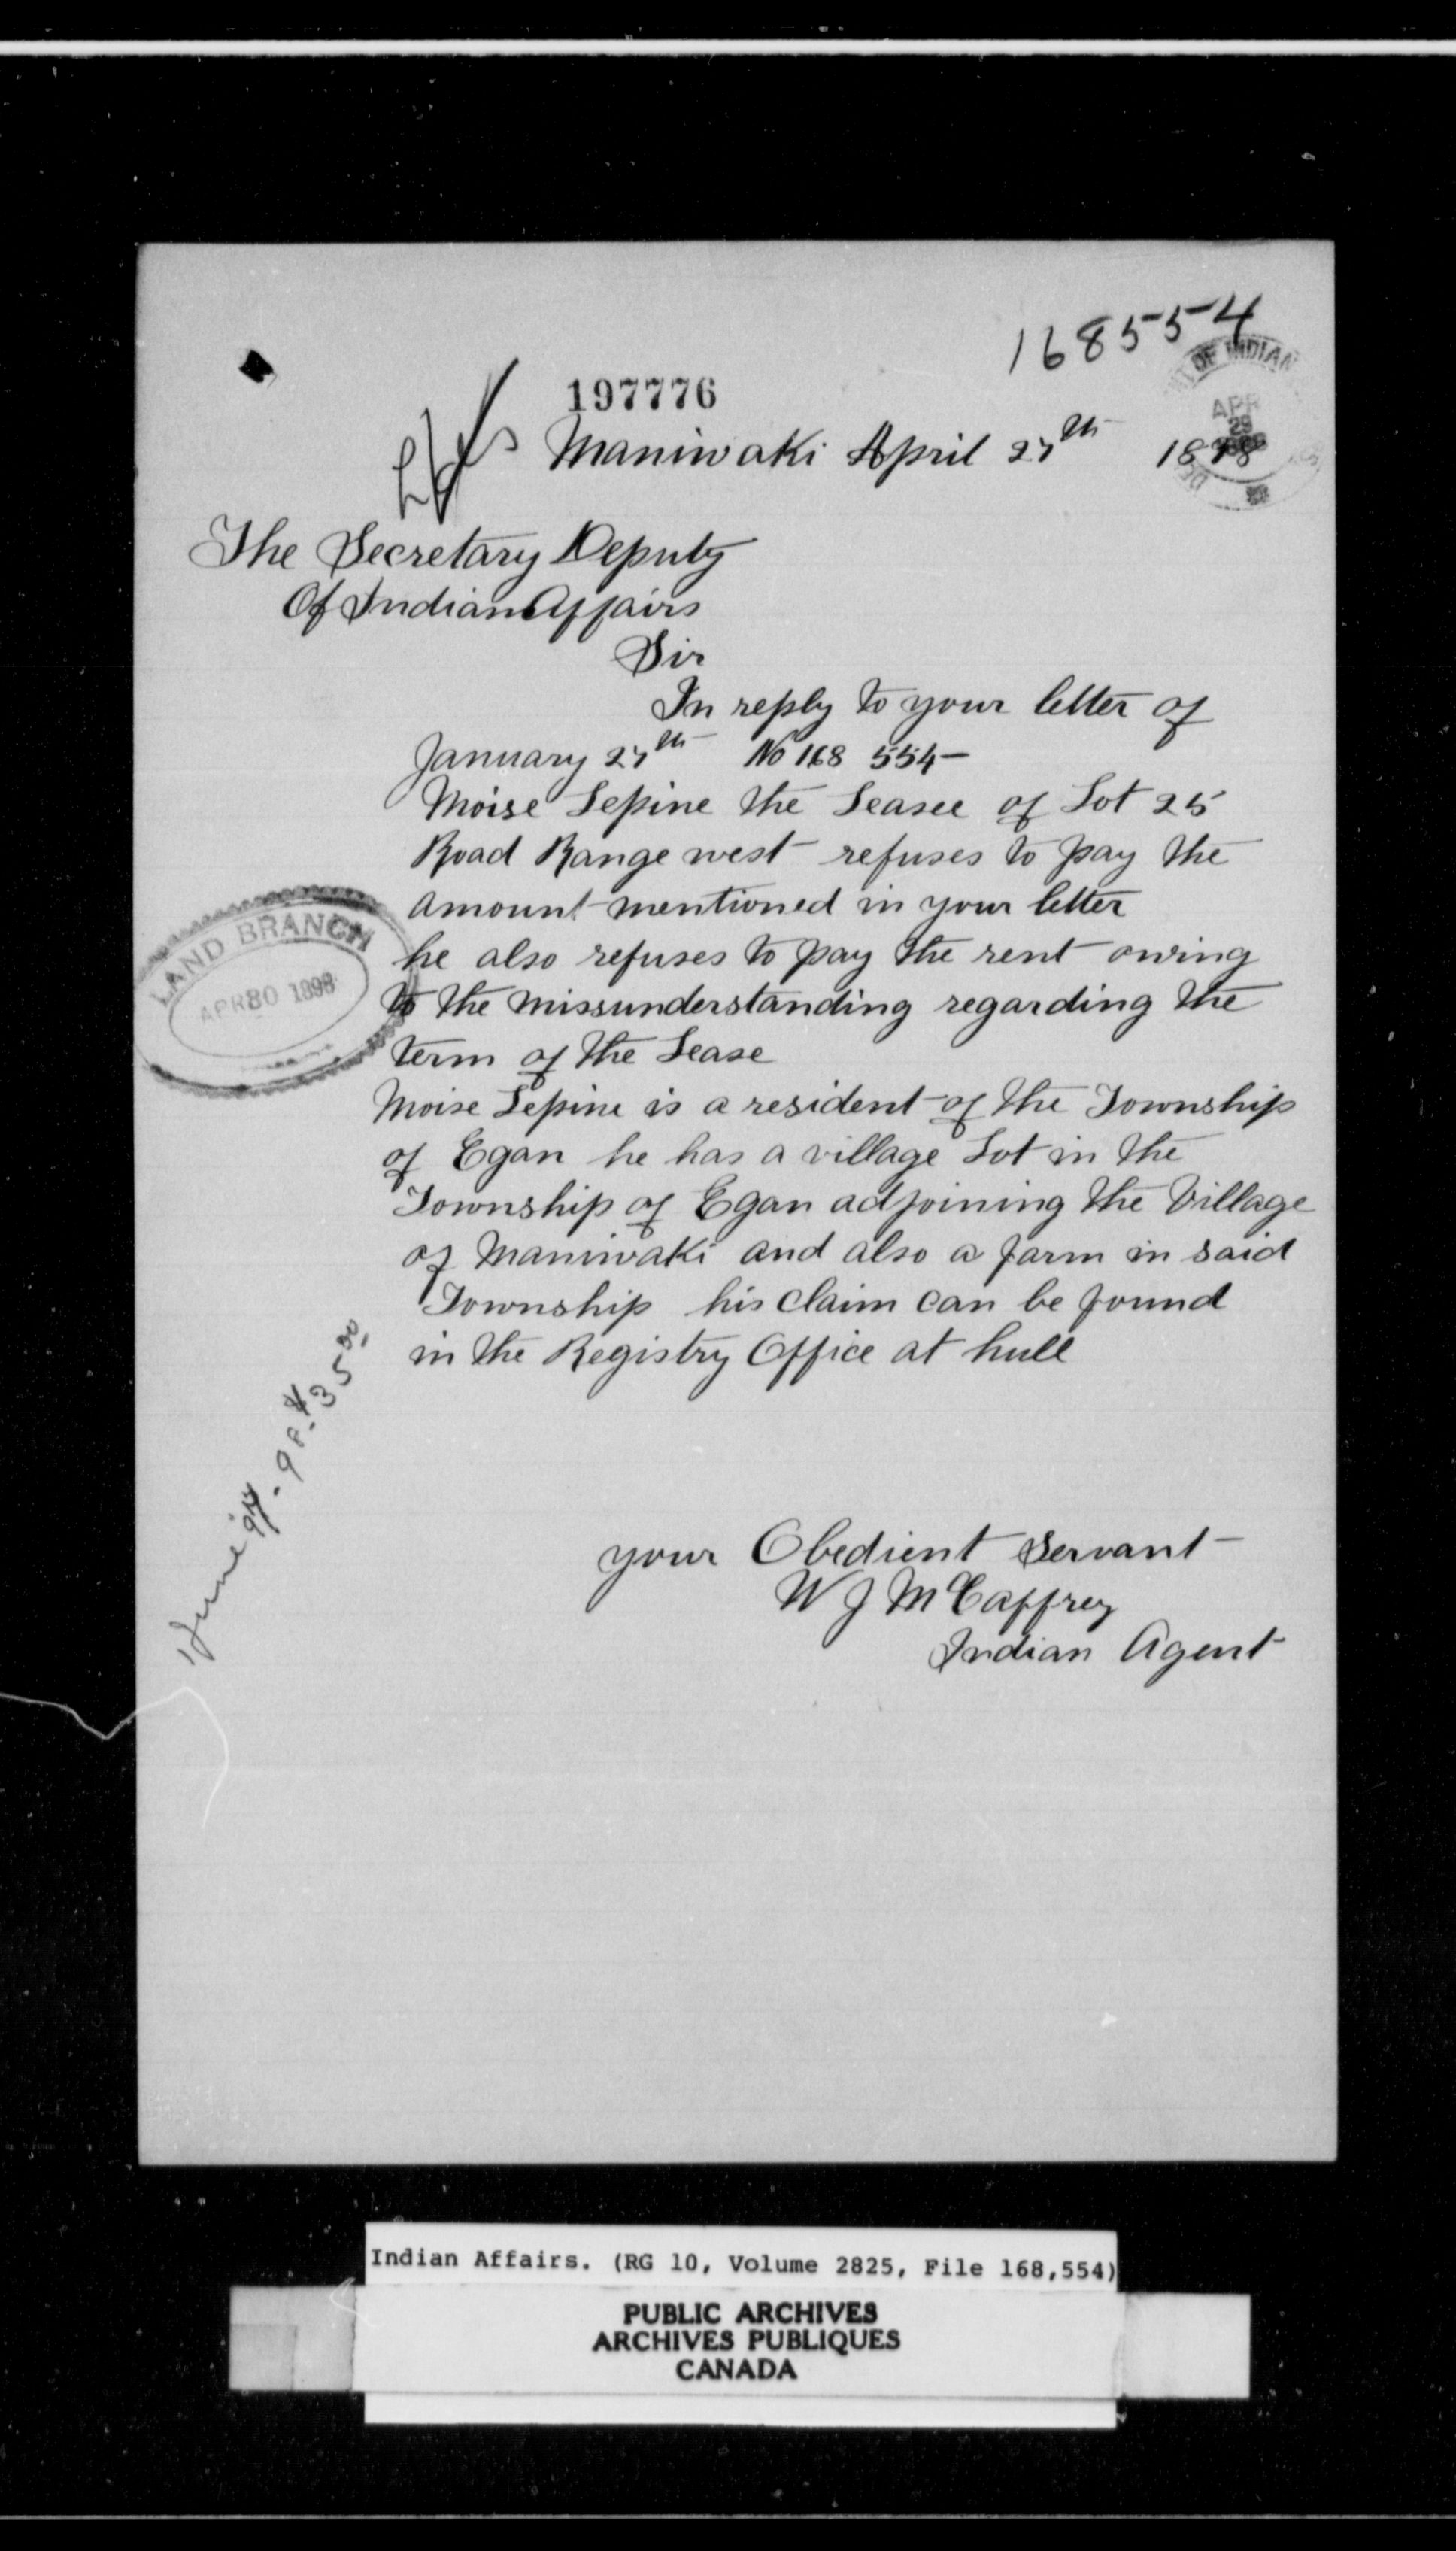 168554
197776
Maniwaki April 27th 1898
DEPT OF INDIAN
APR
29
1898
The Secretary Deputy
Of Indian Affairs
Sir
In reply to your letter of
January 27th No 168 554-
Moise Lepine the Leasee of Lot 25
Road Range west refuses to pay the
amount mentioned in your letter
he also refuses to pay the rent owing
to the missunderstanding regarding the
term of the Lease
Moise Lepine is a resident of the Township
of Egan he has a village Lot in the
Township of Egan adjoining the Village
of Maniwaki and also a farm in said
Township his claim can be found
in the Registry Office at hull
LAND BRANCH
APR 30 1898
June 98. $35.00
your Obedient Servant
W J McCaffrey
Indian Agent
Indian Affairs. (RG 10, Volume 2825, File 168,554)
PUBLIC ARCHIVES
ARCHIVES PUBLIQUES
CANADA